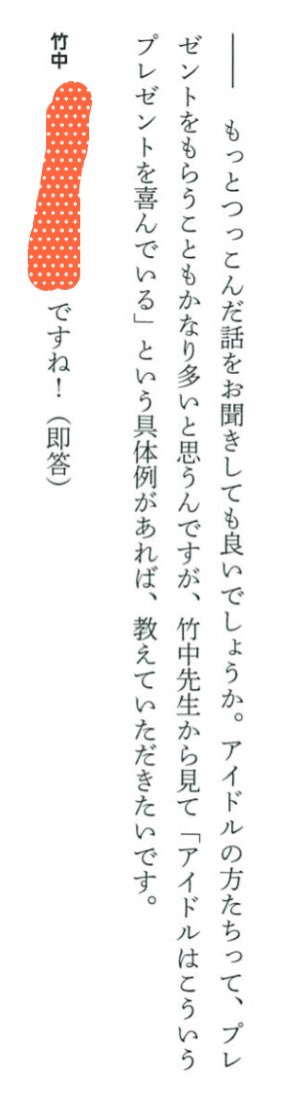 ―― もっとつっこんだ話をお聞きしても良いでしょうか。アイドルの方たちって、プレ
ゼントをもらうこともかなり多いと思うんですが、竹中先生から見て「アイドルはこういう
プレゼントを喜んでいる」という具体例があれば、教えていただきたいです。
竹中 ですね！（即答）